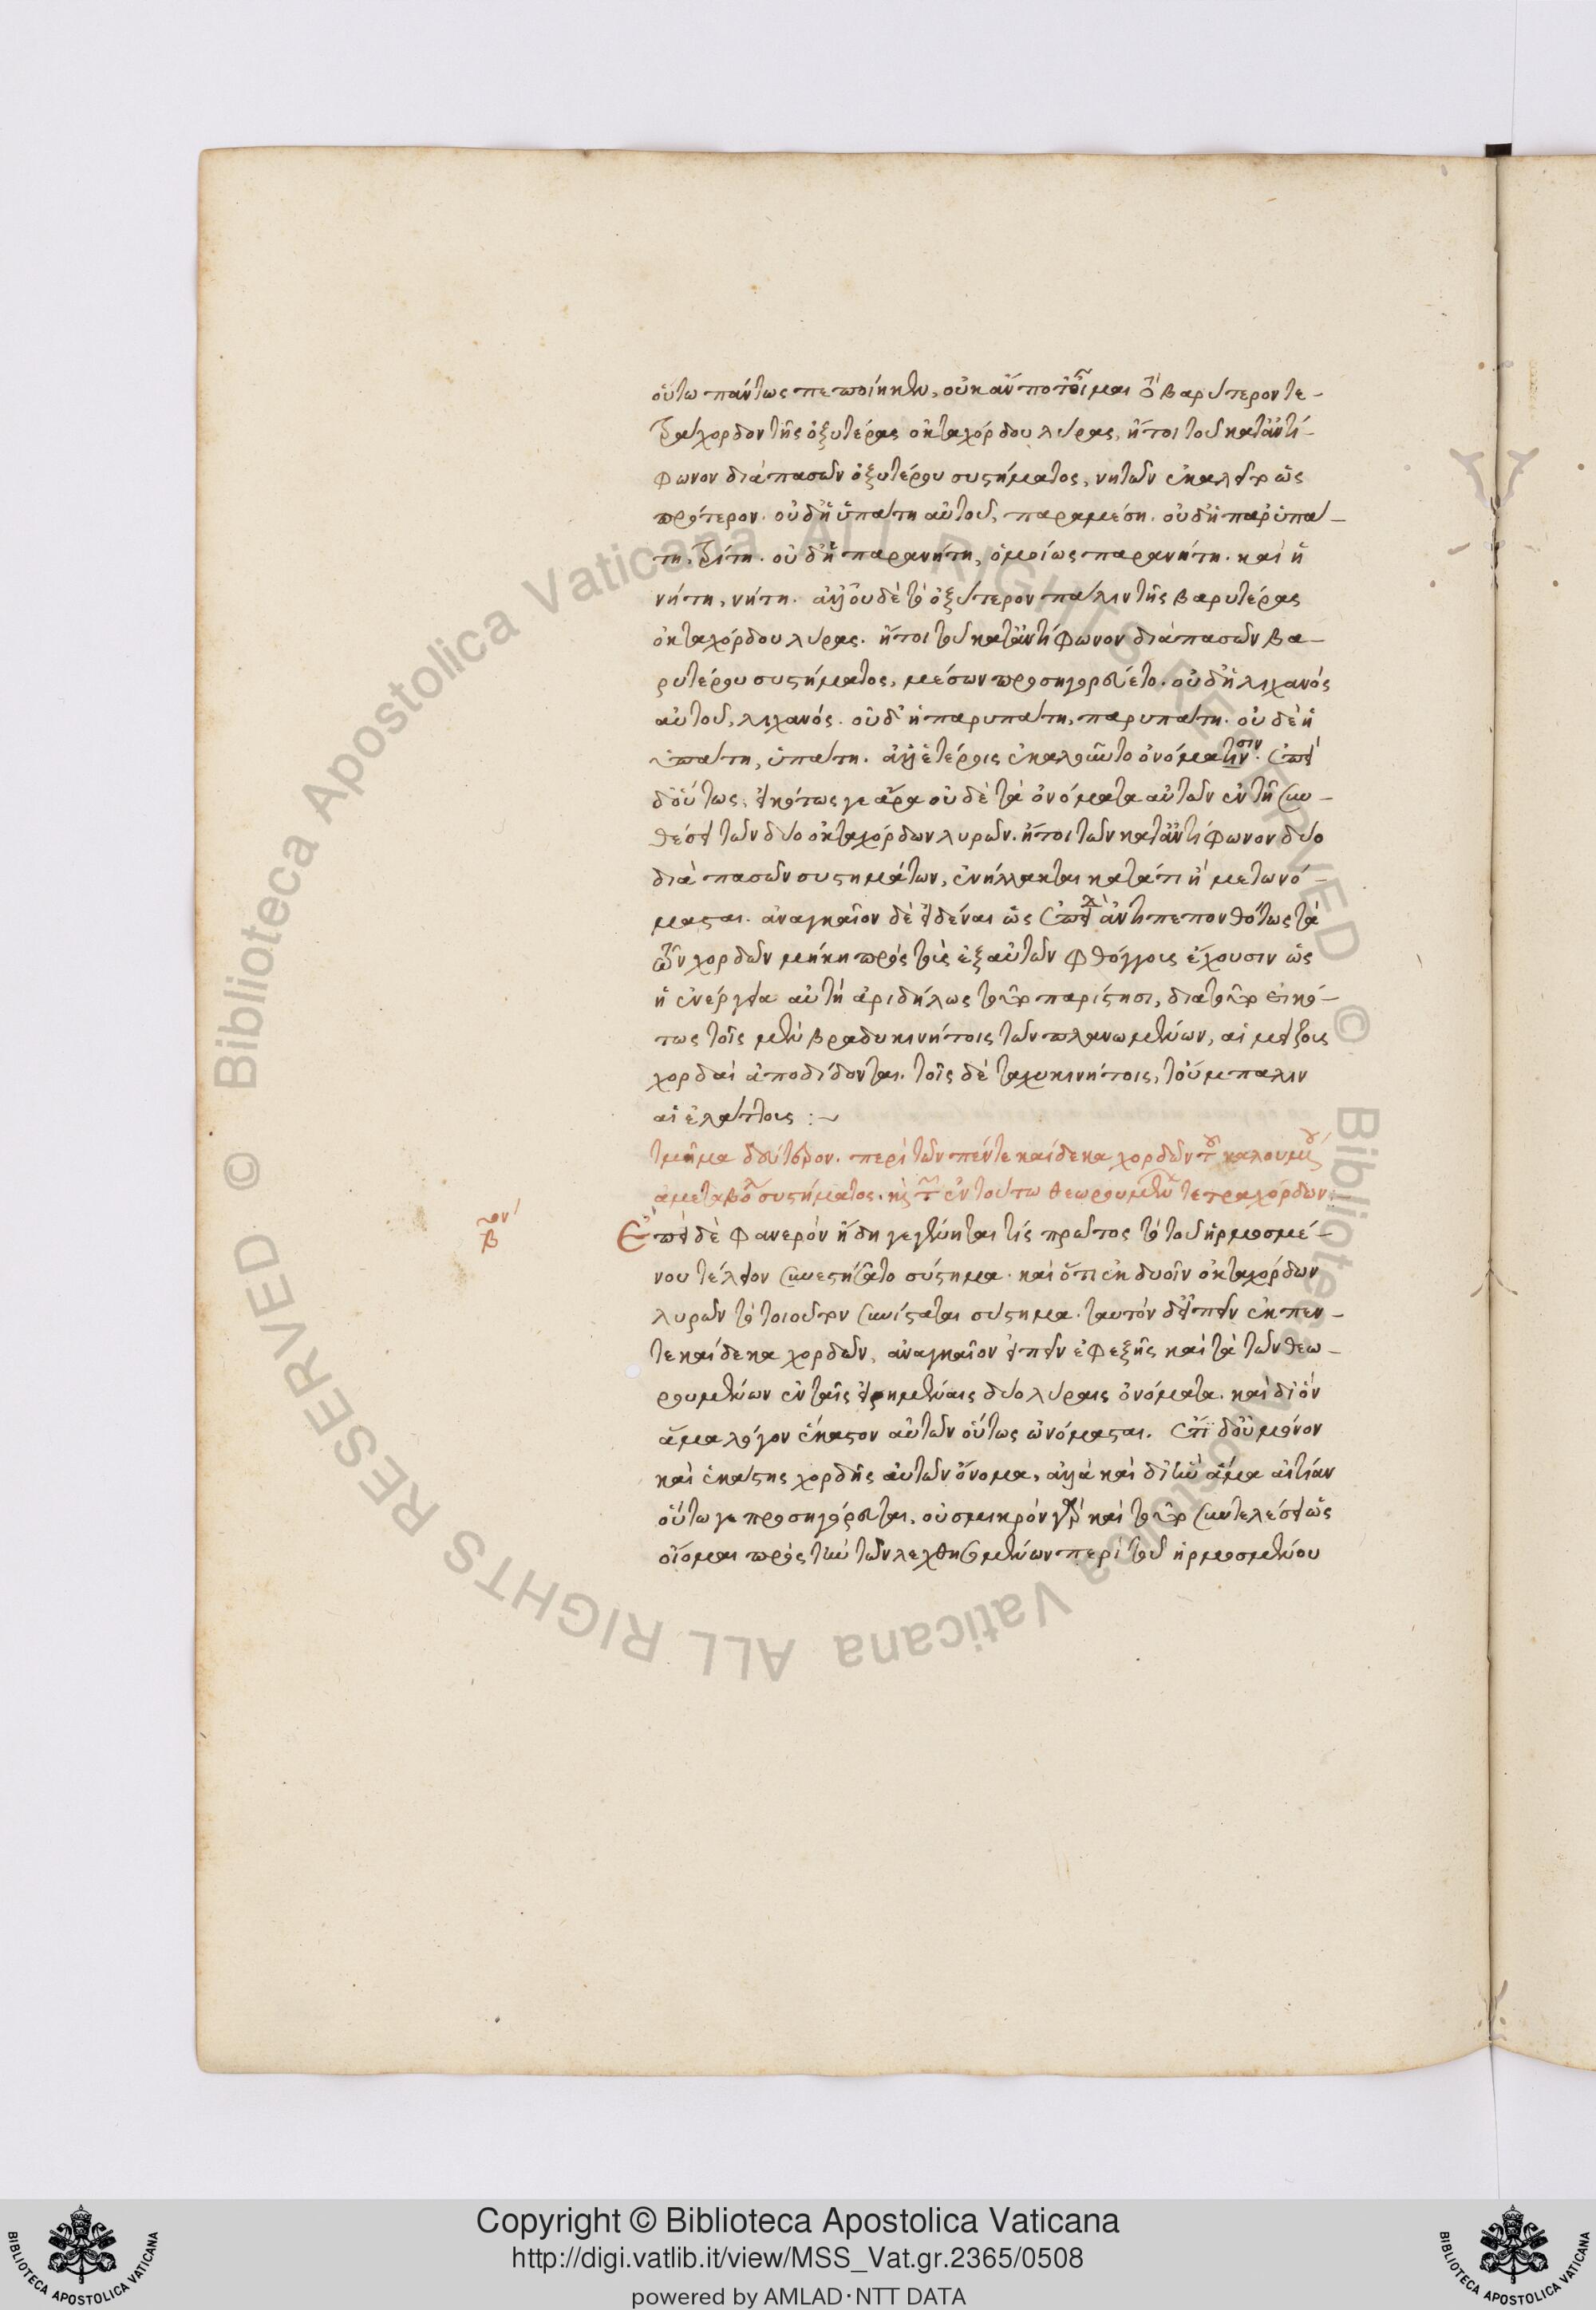 οὕτω πάντως πεποίηκεν, οὐκ ἄν ποτε οἶμαι ὁ βαρύτερον τε-
τράχορδον τῆς ὀξυτέρας ὀκταχόρδου λύρας, ἤτοι τοῦ κατ' ἀντί-
φωνον διαπασῶν ὀξυτέρου συστήματος, νητῶν ἐκαλεῖτο ὡς
πρότερον. οὐδ' ἡ ὑπάτη αὐτοῦ, παραμέση. οὐδ' ἡ παρυπά-
τη, τρίτη. οὐδ' ἡ παρανήτη, ὁμοίως παρανήτη. καὶ ἡ
νήτη, νήτη. ἀλλ' οὐδὲ τὸ ὀξύτερον πάλιν τῆς βαρυτέρας
ὀκταχόρδου λύρας. ἤτοι τοῦ κατ' ἀντίφωνον διαπασῶν βα-
ρυτέρου συστήματος, μέσων προσηγορεύετο. οὐδ' ἡ λιχανός
αὐτοῦ, λιχανός. οὐδ' ἡ παρυπάτη, παρυπάτη. οὐδὲ ἡ
ὑπάτη, ὑπάτη. ἀλλ' ἑτέροις ἐκαλοῦντο ὀνόμασιν. ἐπεὶ
δ' οὕτως, εἰκότως γε ἄρα οὐδὲ τὰ ὀνόματα αὐτῶν ἐν τῇ συν-
θέσει τῶν δύο ὀκταχόρδων λυρῶν. ἤτοι τῶν κατ' ἀντίφωνον δύο
διαπασῶν συστημάτων, ἐνήλλακται κατά τι ἢ μετωνό-
μασται. ἀναγκαῖον δὲ εἰδέναι ὡς ἐπεὶ ἀντιπεπονθότως τὰ
τῶν χορδῶν μήκη πρὸς τοὺς ἐξ αὐτῶν φθόγγους ἔχουσιν ὡς
ἡ ἐνέργεια αὐτὴ ἀριδήλως τοῦτο παρίστησι, διατοῦτο εἰκό-
τως τοῖς μὲν βραδυκινήτοις τῶν πλανωμένων, αἱ μείζους
χορδαὶ ἀποδίδονται. τοῖς δὲ ταχυκινήτοις, τοὔμπαλιν
αἱ ἐλάττους :~
τμῆμα δεύτερον. περὶ τῶν πέντε καίδεκα χορδῶν τοῦ καλουμένου
ἀμεταβόλου συστήματος. καὶ τῶν ἐν τούτω θεωρουμένων τετραχόρδων.
τον β
Ἐπεὶ δὲ φανερὸν ἤδη γεγένηται τίς πρῶτος τὸ τοῦ ἡρμοσμέ-
νου τέλειον συνεστήσατο σύστημα. καὶ ὅτι ἐκ δυοῖν ὀκταχόρδων
λυρῶν τὸ τοιοῦτον συνίσταται σύστημα. ταυτὸν δ' εἰπεῖν ἐκ πεν-
τεκαίδεκα χορδῶν, ἀναγκαῖον εἰπεῖν ἐφεξῆς καὶ τὰ τῶν θεω-
ρουμένων ἐν ταῖς εἰρημέναις δύο λύραις ὀνόματα. καὶ δι' ὃν
ἅμα λόγον ἕκαστον αὐτῶν οὕτως ὠνόμασται. ἔτι δ' οὐ μόνον
καὶ ἑκάστης χορδῆς αὐτῶν ὄνομα, ἀλλὰ καὶ δι' ἣν ἅμα αἰτίαν
οὕτω γε προσηγόρευται. οὐ σμικρὸν γὰρ καὶ τοῦτο συντελέσει ὡς
οἴομαι πρὸς τὴν τῶν λεχθησομένων περὶ τοῦ ἡρμοσμένου
Copyright © Biblioteca Apostolica Vaticana
http://digi.vatlib.it/view/MSS_Vat.gr.2365/0508
powered by AMLAD·NTT DATA